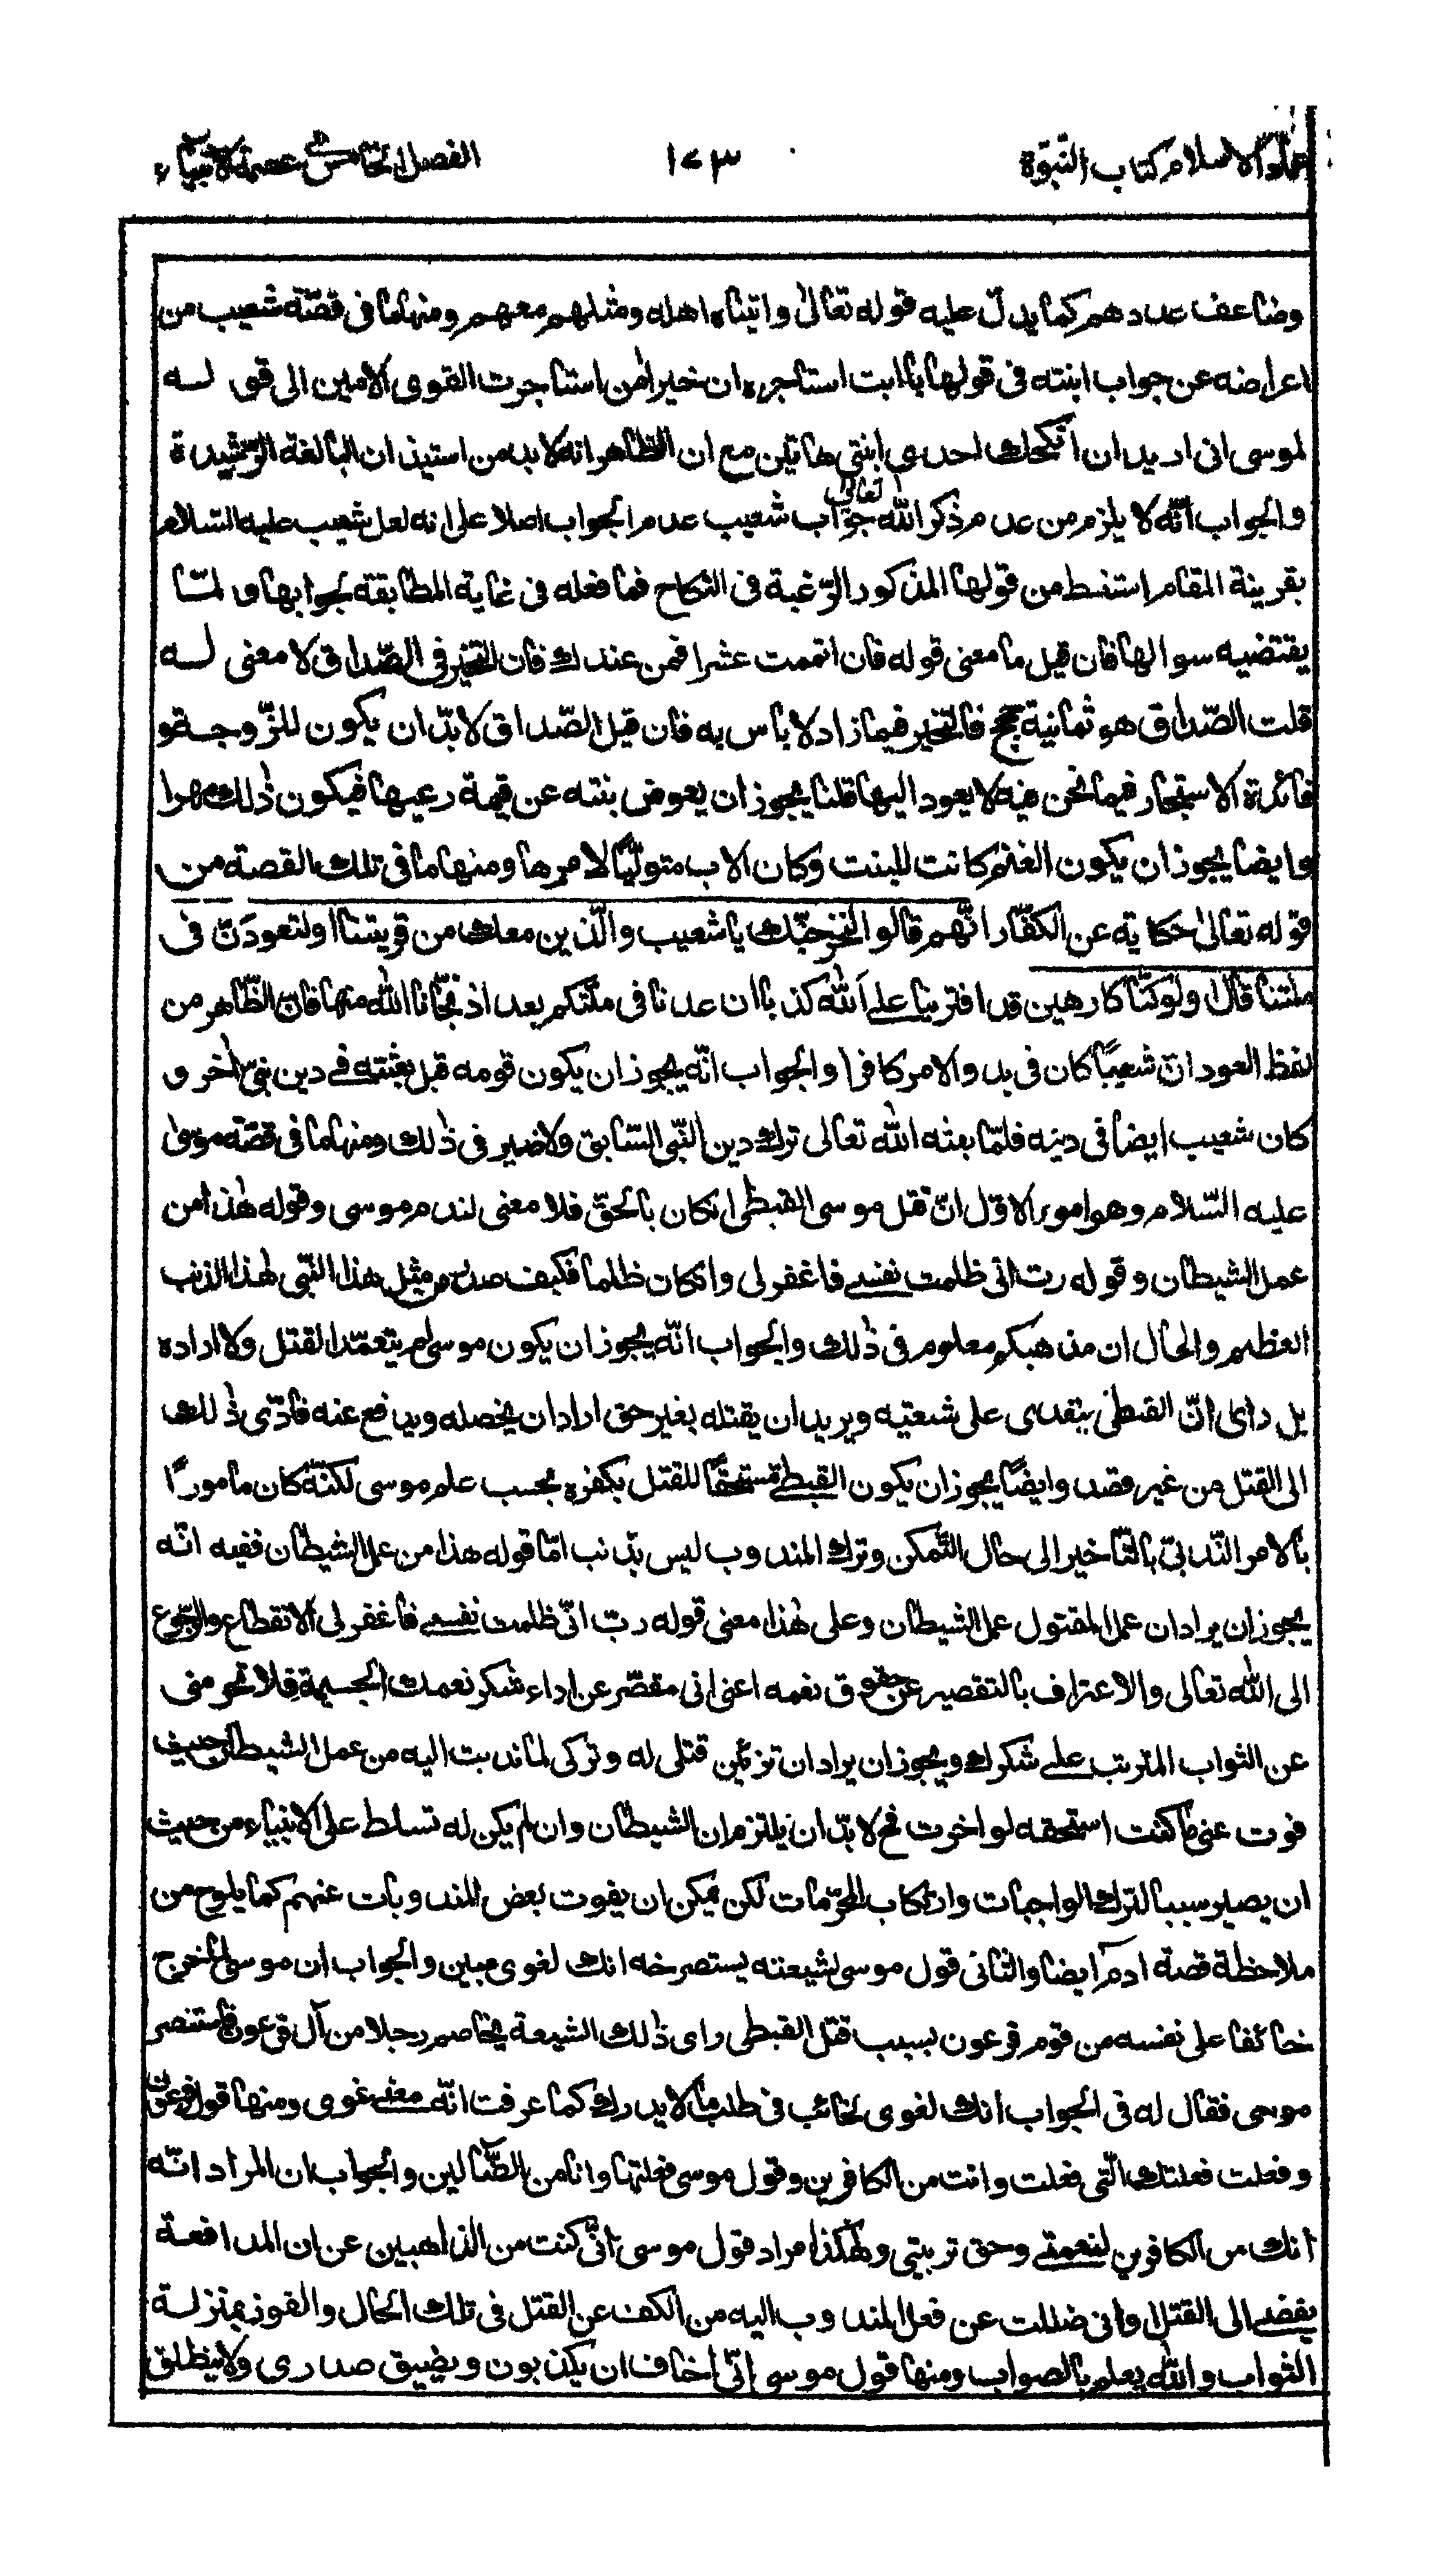 عماد الاسلام كتاب النبوّة ١٧٣ الفصل الخامس فى عصمة الانبياء
وضاعف عددهم كما يدلّ عليه قوله تعالىٰ واتيناه اهله ومثلهم معهم ومنها ما فى قصّة شعيب من
اعراضه عن جواب ابنته فى قولها يا ابت استاجره ان خير من استاجرت القوى الامين الى قوله
لموسى انى اريد ان انكحك احدى ابنتى هاتين مع ان الظاهر انه لابد من استيذان البالغة الرّشيدة
والجواب انّه لا يلزم من عدم ذكر الله تعالى جواب شعيب عدم الجواب اصلا على انه لعل شعيب عليه السّلام
بقرينة المقام استنبط من قولها المذكور الرّغبة فى النكاح فما فعله فى غاية المطابقة بجوابها ولمّا
يقتضيه سوالها فان قيل ما معنى قوله فان اتممت عشرا فمن عندك فان التخير فى الصّداق لا معنى له
قلت الصّداق هو ثمانية حجج فالتّخير فيما زاد لا باس به فان قيل الصّداق لابدّ ان يكون للزّوجة و
فائدة الاستيجار فيما نحن فيه لا يعود اليها قلنا يجوز ان يعوض بنته عن قيمة رعيها فيكون ذٰلك مهرا
وايضا يجوز ان يكون الغنم كانت للبنت وكان الاب متولّيًا لامرها ومنها ما فى تلك القصة من
قوله تعالىٰ حكاية عن الكفّار انّهم قالوا لنخرجنّك يا شعيب والّذين معك من قريتنا او لتعودنّ فى
ملتنا قال اولو كنّا كارهين قد افترينا على الله كذبا ان عدنا فى ملّتكم بعد اذ نجّانا الله منها فانّ الظّاهر من
لفظ العود انّ شعيبًا كان فى بدو الامر كافرا والجواب انّه يجوز ان يكون قومه قبل بعثته فى دين نبىّ اٰخر و
كان شعيب ايضا فى دينه فلمّا بعثه الله تعالى ترك دين النّبى السّابق ولا ضير فى ذٰلك ومنها ما فى قصّة موسىٰ
عليه السّلام وهو امور الاوّل انّ قتل موسى القبطى انكان بالحقّ فلا معنى لندم موسى وقوله هٰذا من
عمل الشيطان وقوله ربّ انى ظلمت نفسى فاغفر لى وانكان ظلما فكيف صدر من مثل هذا النّبى هٰذا الذنب
العظيم والحال ان مذهبكم معلوم فى ذٰلك والجواب انّه يجوز ان يكون موسى لم يتعمّد القتل ولا اراده
بل راى انّ القبطى يتعدى على شيعتيه ويريد ان يقتله بغير حق اراد ان يخلصه ويدافع عنه فادّى ذٰلك
الى القتل من غير قصد وايضًا يجوز ان يكون القبطى مستحقًا للقتل بكفره بحسب علم موسى لكنّه كان مامورًا
بالامر النّدبىّ بالتّاخير الى حال التّمكن وترك المندوب ليس بذنب امّا قوله هذا من عمل الشيطان ففيه انّه
يجوز ان يراد ان عمل المقتول عمل الشيطان وعلى هٰذا معنى قوله ربّ انّى ظلمت نفسى فاغفر لى الانقطاع والرّجوع
الى الله تعالى والاعتراف بالتقصير عن حقوق نعمه اعنى انى مقصّر عن اداء شكر نعمك الجسيمة فلا تحرمنى
عن الثواب المترتب على شكرك ويجوز ان يراد ان تزئين قتلى له وتركى لما ندبت اليه من عمل الشيطان حيث
فوت عنى ما كنت استحقه لو اخرت فح لابدّ ان يلتزم ان الشيطان وان لم يكن له تسلط على الانبياء من حيث
ان يصير سببا لترك الواجبات وارتكاب المحرّمات لكن يمكن ان يفوت بعض المندوبات عنهم كما يلوح من
ملاحظة قصة ادم ايضا والثانى قول موسى لشيعته يستصرخه انك لغوى مبين والجواب ان موسى لمّا خرج
خائفا على نفسه من قوم فرعون بسبب قتل القبطى راى ذٰلك الشيعة يخاصم رجلا من آل فرعون فاستنصر
موسى فقال له فى الجواب انك لغوى لخائب فى طلب ما لا يدرك كما عرفت انّه معنى غوى ومنها قول فرعون
وفعلت فعلتك الّتى فعلت وانت من الكافرين وقول موسى فعلتها وانا من الضّالين والجواب ان المراد انّه
انك من الكافرين لنعمتى وحق تربيتى وهٰكذا مراد قول موسى انّى كنت من الذاهبين عن ان المدافعة
يفضى الى القتل وانى ضللت عن فعل المندوب اليه من الكف عن القتل فى تلك الحال والفوز بمنزلة
الثواب والله يعلم بالصواب ومنها قول موسى انّى اخاف ان يكذبون ويضيق صدرى ولا ينطلق